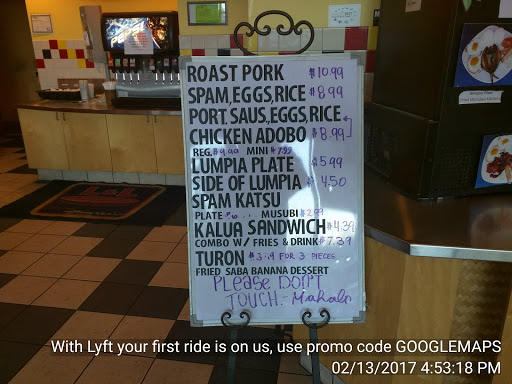 ROAST PORK $10.99
SPAM,EGGS,RICE $8.99
PORT. SAUS,EGGS,RICE
CHICKEN ADOBO $8.99
REG. $9.99 MINI $7.99
LUMPIA PLATE $5.99
SIDE OF LUMPIA $4.50
SPAM KATSU
PLATE MUSUBI $2.99
KALUA SANDWICH $4.39
COMBO W/ FRIES & DRINK $7.39
TURON FOR 3 PIECES
FRIED SABA BANANA DESSERT
PLEASE DON'T
TOUCH.- Mahalo
With Lyft your first ride is on us, use promo code GOOGLEMAPS
02/13/2017 4:53:18 PM